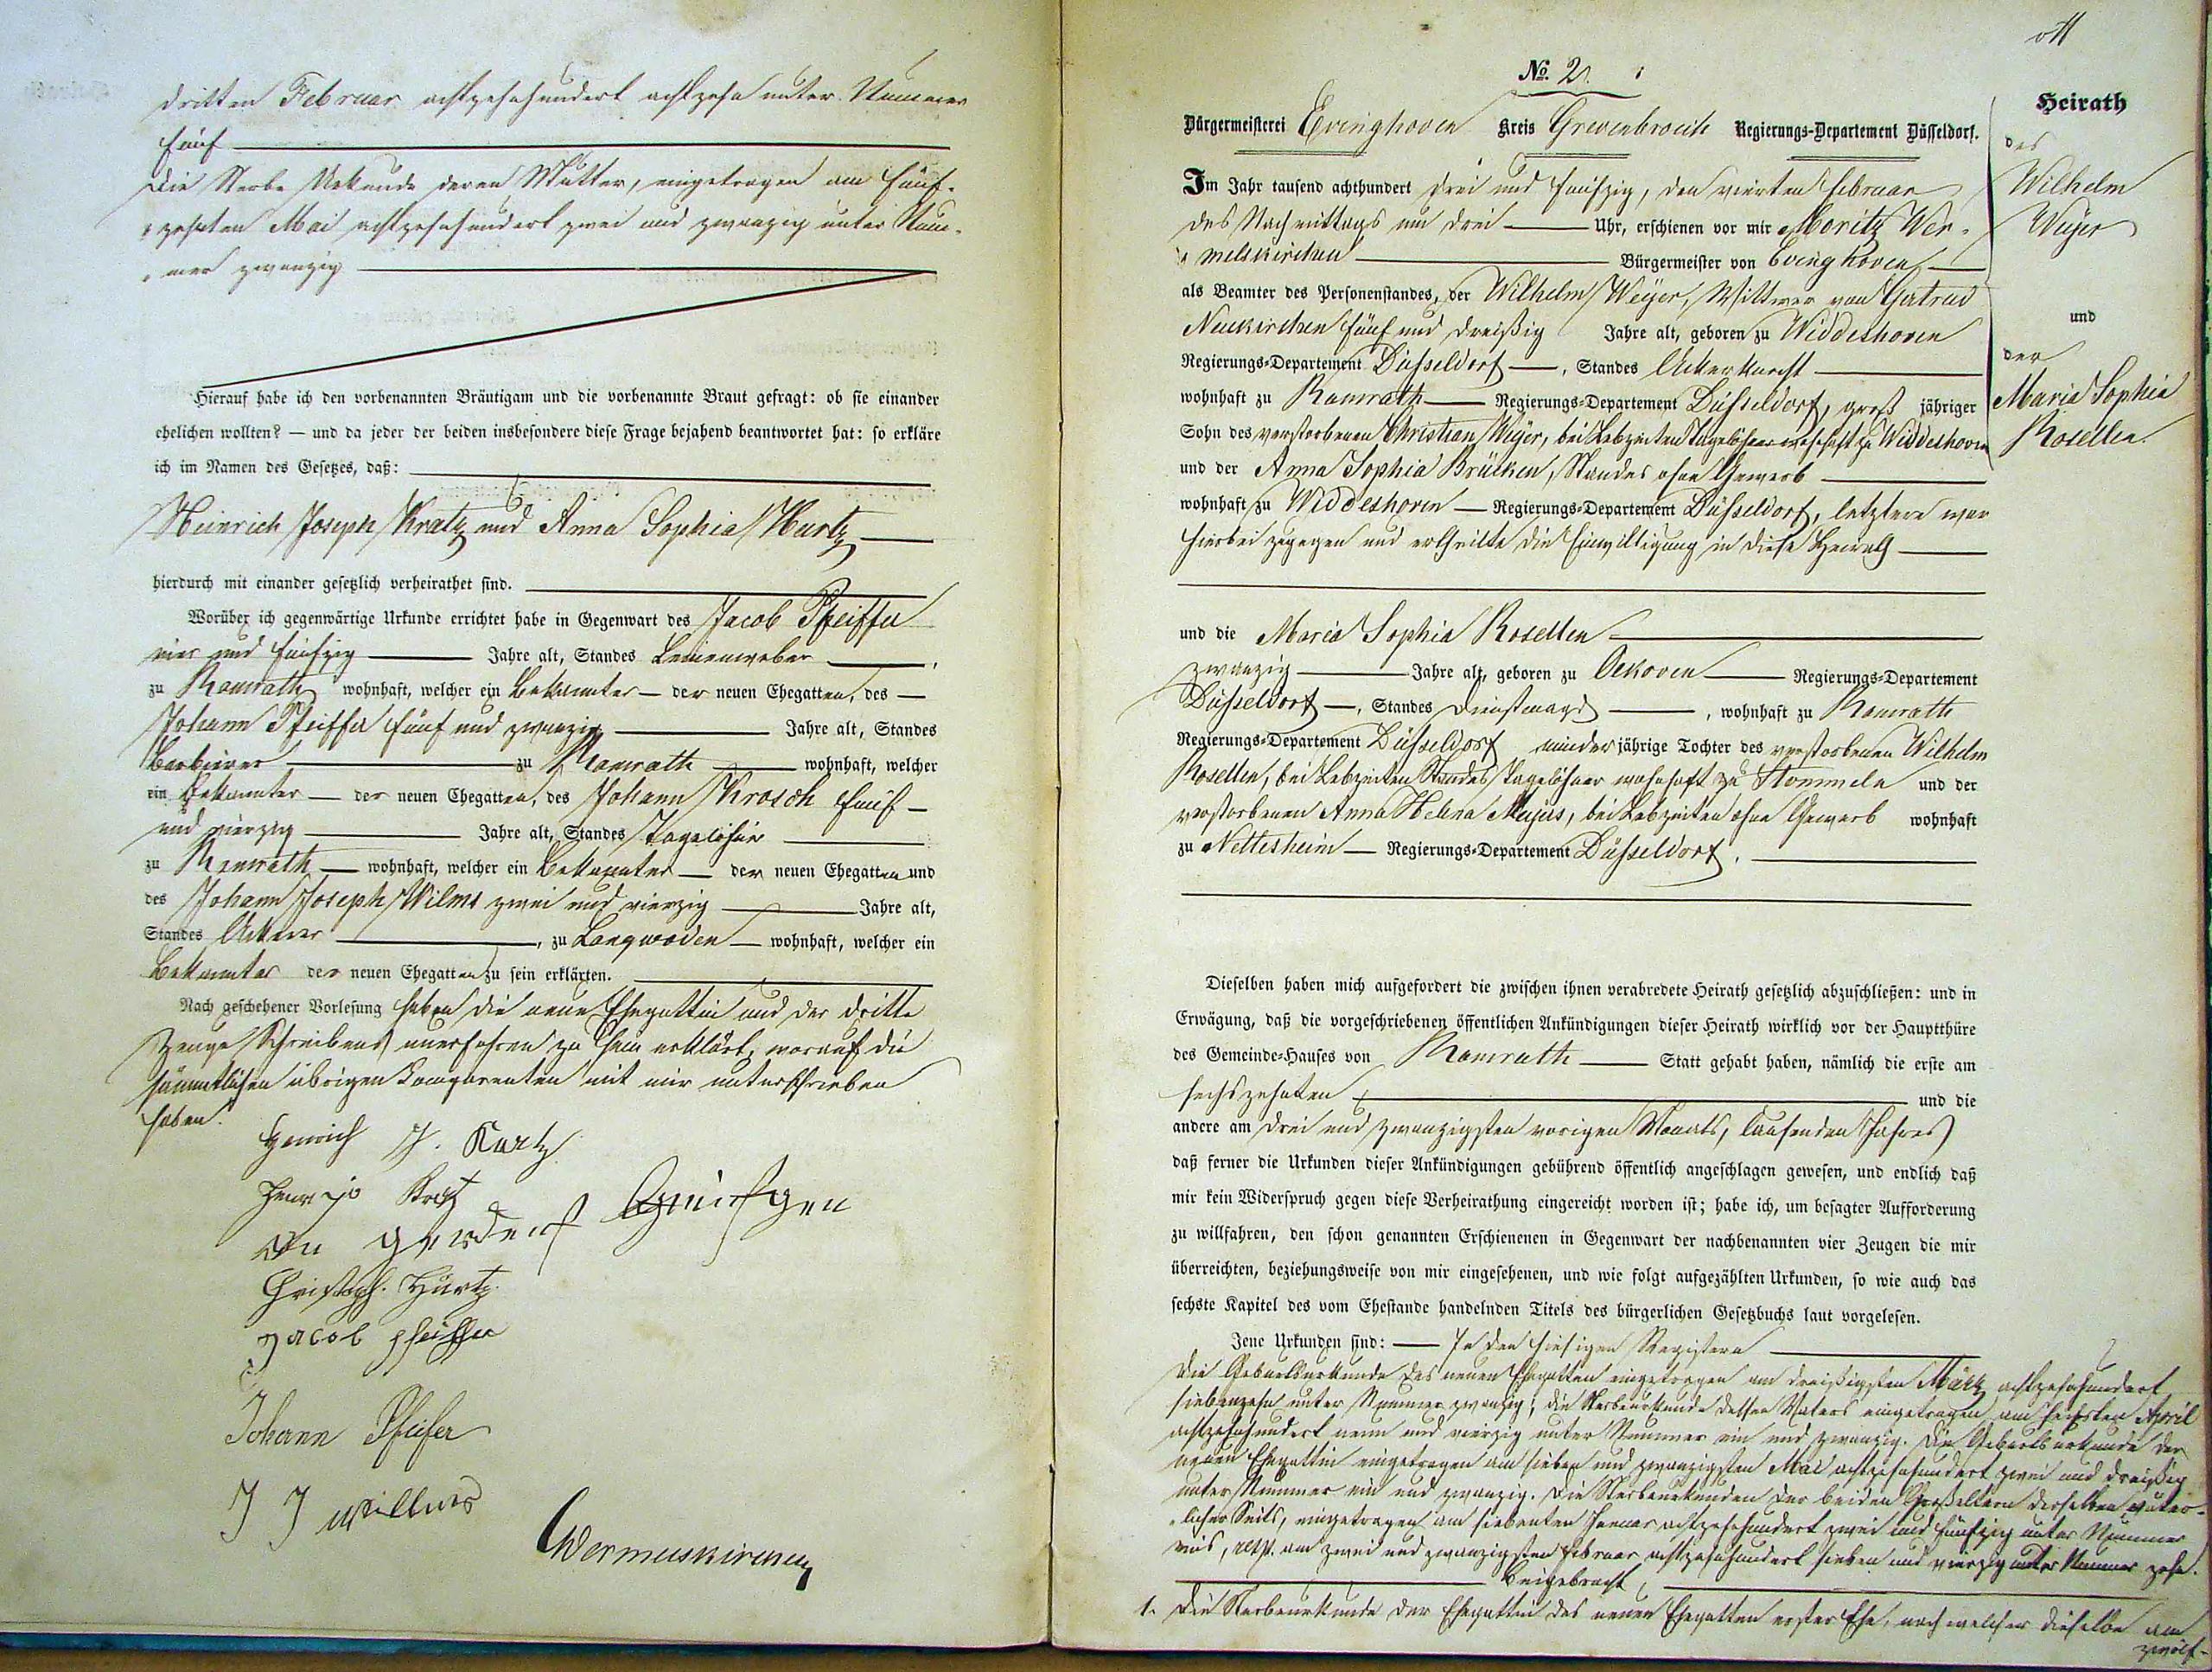 dritten Februar achtzehnhundert achtzehn unter Nummer
fünf
Die Sterbe Urkunde deren Mutter, eingetragen am fünf-
zehnten Mai achtzehnhundert zwei und zwanzig unter Num-
mer zwanzig
Hierauf habe ich den vorbenannten Bräutigam und die vorbenannte Braut gefragt: ob sie einander
ehelichen wollten? — und da jeder der beiden insbesondere diese Frage bejahend beantwortet hat: so erkläre
ich im Namen des Gesetzes, daß:
Heinrich Joseph Kratz und Anna Sophia Hurtz
hierdurch mit einander gesetzlich verheirathet sind.
Worüber ich gegenwärtige Urkunde errichtet habe in Gegenwart des Jacob Pfeiffer
vier und fünfzig Jahre alt, Standes Leinenweber
zu Ramrath wohnhaft, welcher ein Bekannter der neuen Ehegatten, des
Johann Pfeiffer fünf und zwanzig Jahre alt, Standes
Barbierer zu Ramrath wohnhaft, welcher
ein Bekannter der neuen Ehegatten, des Johann Krosch fünf
und vierzig Jahre alt, Standes Tagelöhner
zu Ramrath wohnhaft, welcher ein Bekannter der neuen Ehegatten und
des Johann Joseph Wilms zwei und vierzig Jahre alt,
Standes Ackerer, zu Langwaden wohnhaft, welcher ein
Bekannter der neuen Ehegatten zu sein erklärten.
Nach geschehener Vorlesung haben die neue Ehegattin und der dritte
Zeuge Schreibens unerfahren zu sein erklärt, worauf die
sämmtlichen übrigen Comparenten mit mir unterschrieben
haben.
Heinrich J. Kurtz
Kratz
Christoph. Hürtz
Jacob Pfeiffer
Johann Pfeifer
J J Willms
Wermelskirchen
No. 2.
Heirath
des
Wilhelm
Weyer
und
der
Maria Sophia
Rosellen.
Bürgermeisterei Evinghoven Kreis Grevenbroich Regierungs-Departement Düsseldorf.
Im Jahr tausend achthundert drei und fünfzig, den vierten Februar
des Nachmittags um drei Uhr, erschienen vor mir Moritz Wer-
melskirchen Bürgermeister von Evinghoven
als Beamter des Personenstandes, der Wilhelm Weyer, Wittwer von Gertrud
Neukirchen fünf und dreißig Jahre alt, geboren zu Widdeshoven
Regierungs-Departement Düsseldorf, Standes Ackerknecht
wohnhaft zu Ramrath Regierungs-Departement Düsseldorf, groß jähriger
Sohn des verstorbenen Christian Weyer, bei Lebzeiten Tagelöhner wohnhaft zu Widdeshoven
und der Anna Sophia Brücken, Standes ohne Gewerb
wohnhaft zu Widdeshoven Regierungs-Departement Düsseldorf, letztere war
hierbei zugegen und ertheilte die Einwilligung in diese Heirath
und die Maria Sophia Rosellen
zwanzig Jahre alt, geboren zu Oekoven Regierungs-Departement
Düsseldorf, Standes Dienstmagd, wohnhaft zu Ramrath
Regierungs-Departement Düsseldorf minder jährige Tochter des verstorbenen Wilhelm
Rosellen, bei Lebzeiten Standes Tagelöhner wohnhaft zu Stommeln und der
verstorbenen Anna Helena Meyers, bei Lebzeiten ohne Gewerb wohnhaft
zu Nettesheim Regierungs-Departement Düsseldorf.
Dieselben haben mich aufgefordert die zwischen ihnen verabredete Heirath gesetzlich abzuschließen: und in
Erwägung, daß die vorgeschriebenen öffentlichen Ankündigungen dieser Heirath wirklich vor der Hauptthüre
des Gemeinde-Hauses von Ramrath Statt gehabt haben, nämlich die erste am
sechszehnten und die
andere am drei und zwanzigsten vorigen Monats, laufenden Jahres
daß ferner die Urkunden dieser Ankündigungen gebührend öffentlich angeschlagen gewesen, und endlich daß
mir kein Widerspruch gegen diese Verheirathung eingereicht worden ist; habe ich, um besagter Aufforderung
zu willfahren, den schon genannten Erschienenen in Gegenwart der nachbenannten vier Zeugen die mir
überreichten, beziehungsweise von mir eingesehenen, und wie folgt aufgezählten Urkunden, so wie auch das
sechste Kapitel des vom Ehestande handelnden Titels des bürgerlichen Gesetzbuchs laut vorgelesen.
Jene Urkunden sind: In den hiesigen Registern
Die Geburtsurkunde des neuen Ehegatten eingetragen am dreißigsten März achtzehnhundert
siebenzehn unter Nummer zwanzig; die Sterbeurkunde dessen Vaters eingetragen am sechsten April
achtzehnhundert neun und vierzig unter Nummer ein und zwanzig. Die Geburtsurkunde der
neuen Ehegattin eingetragen am sieben und zwanzigsten Mai achtzehnhundert zwei und dreißig
unter Nummer ein und zwanzig. Die Sterbeurkunden der beiden Großeltern derselben väter-
licher Seits, eingetragen am siebenten Januar achtzehnhundert zwei und fünfzig unter Nummer
eins, resp. am zwei und zwanzigsten Februar achtzehnhundert sieben und vierzig unter Nummer zehn.
Beigebracht
1. Die Sterbeurkunde der Ehegattin des neuen Ehegatten erster Ehe, nach welcher dieselbe am
zwölf-